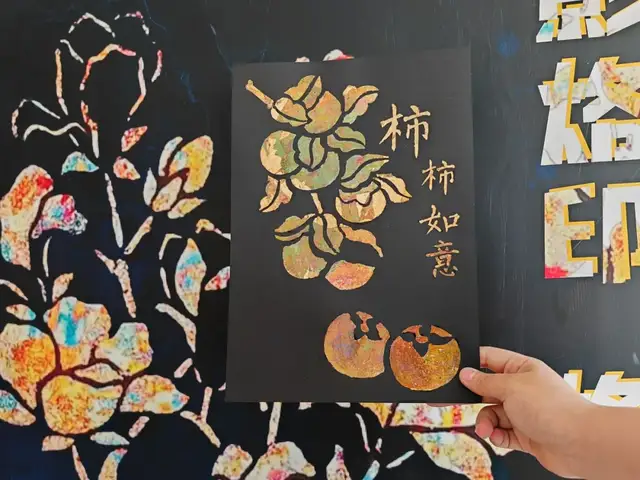 柿柿如意
烙印